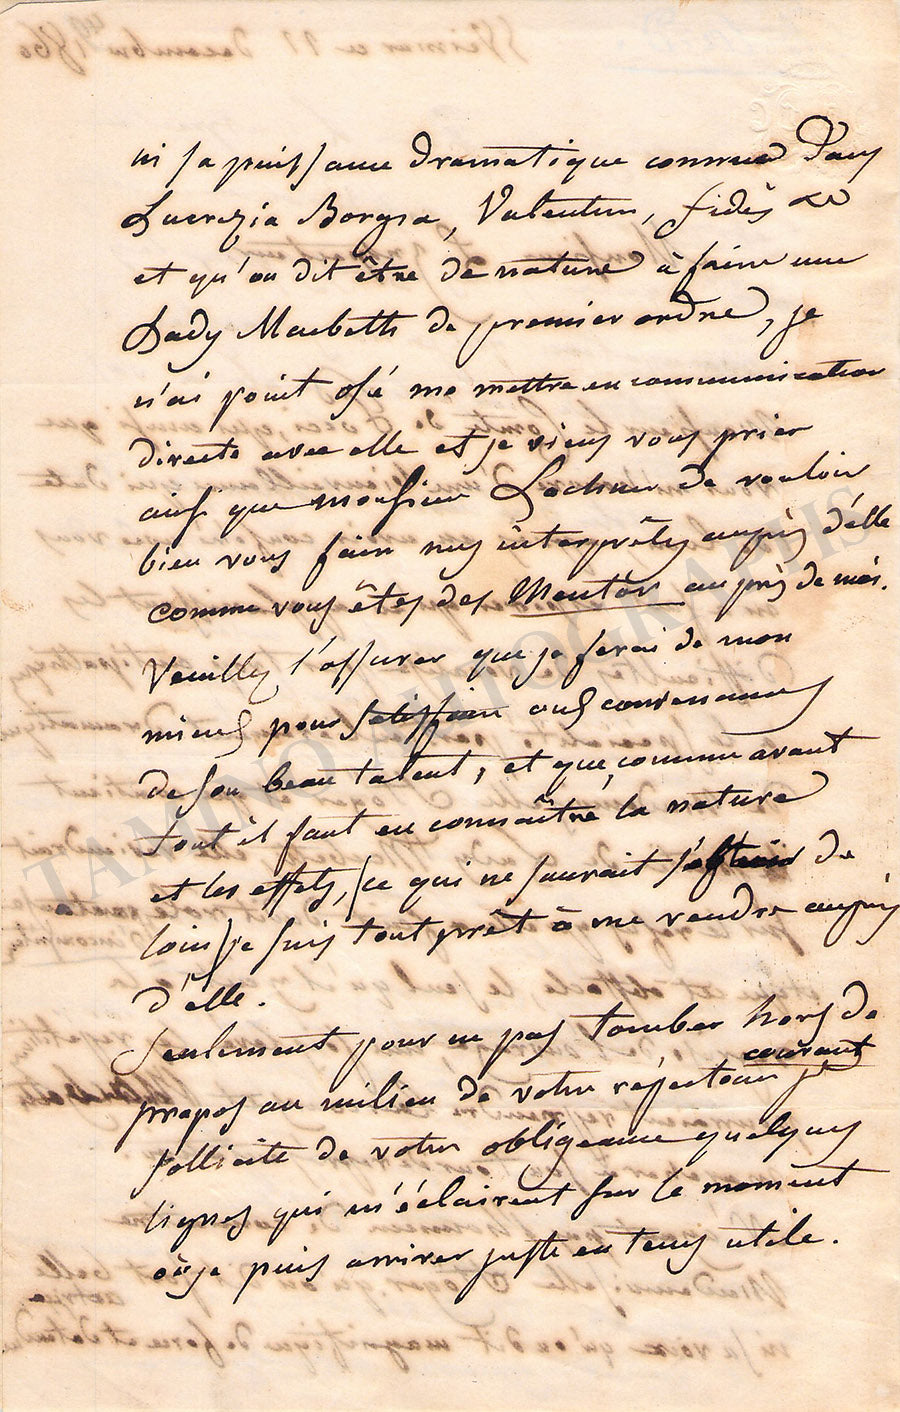 ni sa puissance dramatique connue dans
Lucrezia Borgia, Valentin, fidès &c
et qu'on dit être de nature à faire une
Lady Macbeth de premier ordre, je
n'ai point osé me mettre en communication
directe avec elle et je viens vous prier
ainsi que monsieur Lachner de vouloir
bien vous faire mes interprêtes auprès d'elle
comme vous êtes des Mentor auprès de moi.
Veuillez l'assurer que je ferai de mon
mieux pour satisfaire aux convenances
de son beau talent, et que, comme avant
tout il faut en connaître la nature
et les effets, (ce qui ne saurait de
loin) je suis tout prêt à me rendre auprès
d'elle.
Seulement pour ne pas tomber hors de
propos au milieu de votre répertoire courant je
sollicite de votre obligeance quelques
lignes qui m'éclairent sur le moment
où je puis arriver juste en tems utile.
TAMINO AUTOGRAPHS